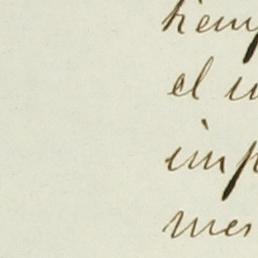 tiemp
el
imp
mes